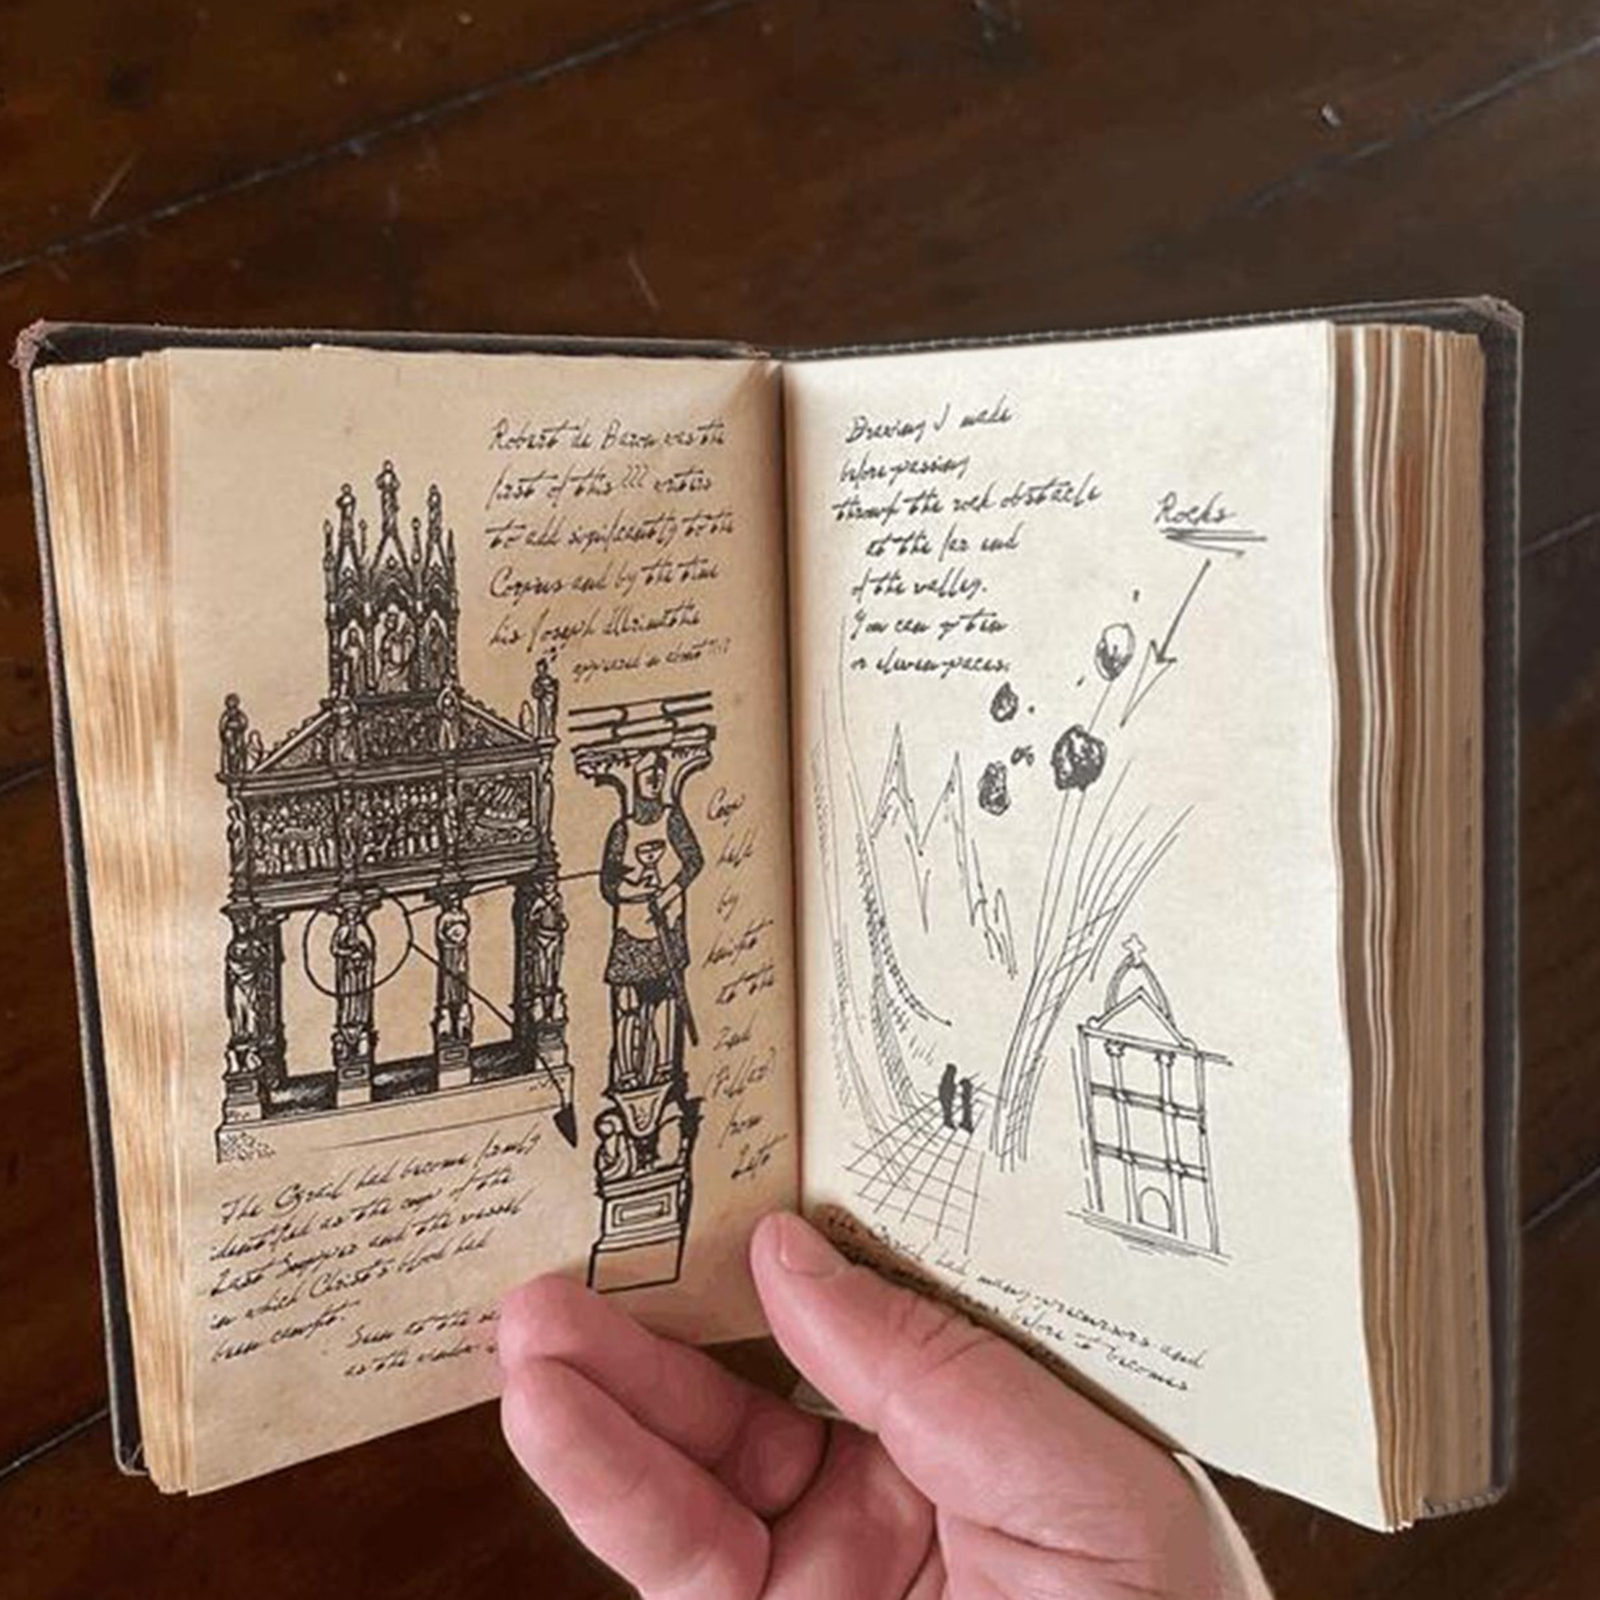 Robert de Baron was the
first of this ??? writers
to add significantly to the
Corpus and by the time
his Joseph
appeared in about
Cup
held
by
knight
at the
2nd
(Pillar)
from
Left
The Grail had become firmly
identified as the cup of the
Last Supper and the vessel
in which Christ's blood had
been caught.
Seen at the
as the
Drawing I made
before passing
through the rock obstacle
at the far end
of the valley.
You can go ten
or eleven paces.
Rocks
The Grail had many precursors and
before it becomes